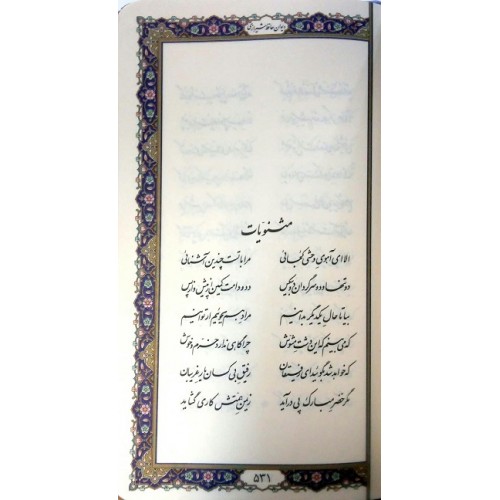 دیوان حافظ شیرازی
مثنویات
الا ای آهوی وحشی کجائی مرا با تست چندین آشنائی
دو تنها و دو سرگردان دو بیکس دد و دامت کمین از پیش و از پس
بیا تا حال یکدیگر بدانیم مراد هم بجوئیم ار توانیم
که می‌بینم که این دشت مشوش چراگاهی ندارد خرم و خوش
که خواهد شد بگوئید ای رفیقان رفیق بی کسان یار غریبان
مگر خضر مبارک پی درآید ز یمن همتش کاری گشاید
۵۳۱